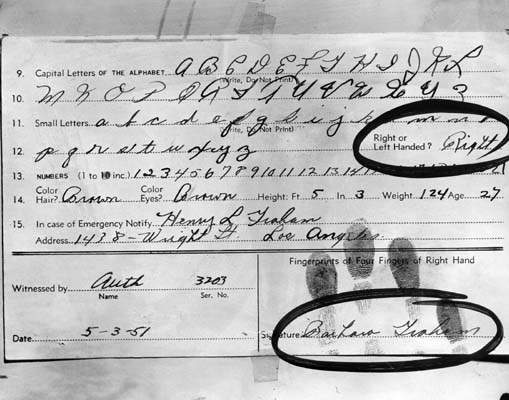 9. Capital Letters OF THE ALPHABET A B C D E F G H I J K L
(Write, Do Not Print)
10. M N O P Q R S T U V W X Y Z
11. Small Letters a b c d e f g h i j k l m n o
(Write, Do Not Print)
12. p q r s t u v w x y z
Right or Left Handed? Right
13. NUMBERS (1 to 10 inc.) 1 2 3 4 5 6 7 8 9 10 11 12 13 14
14. Color Hair? Brown Color Eyes? Brown Height: Ft 5 In 3 Weight 124 Age 27
15. In case of Emergency Notify Henry L Graham
Address 1438 - Wright St Los Angeles
Fingerprints of Four Fingers of Right Hand
Witnessed by Auth 3203
Name Ser. No.
Date 5-3-51 Signature Barbara Graham